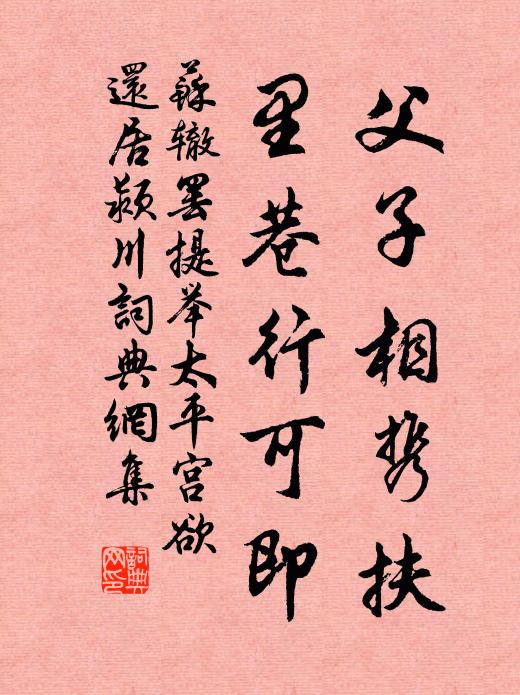 父子相携扶
里巷行可即
蘇辙罢提举太平宫欲
還居颍川詞典網集
詞典网印